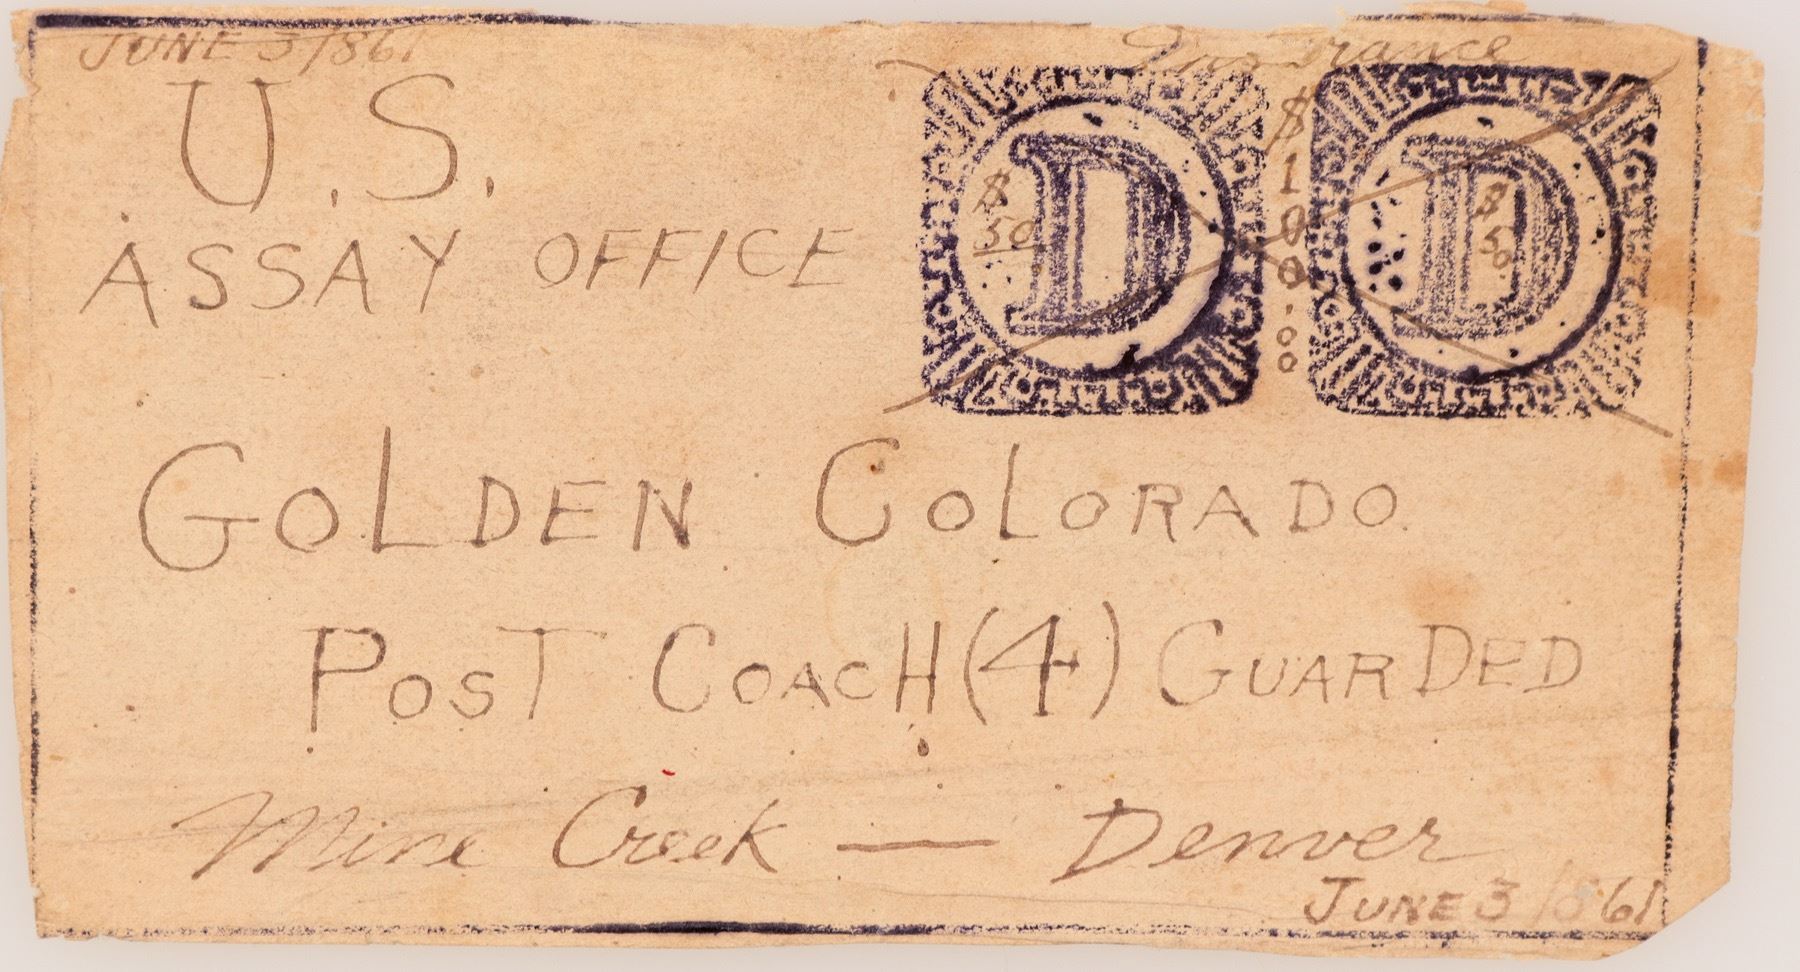 JUNE 3 1861
Insurance
U.S.
ASSAY OFFICE
D
$ 50
$ 100.00
D
$ 50
GOLDEN COLORADO
POST COACH (4) GUARDED
Mine Creek — Denver
JUNE 3 1861